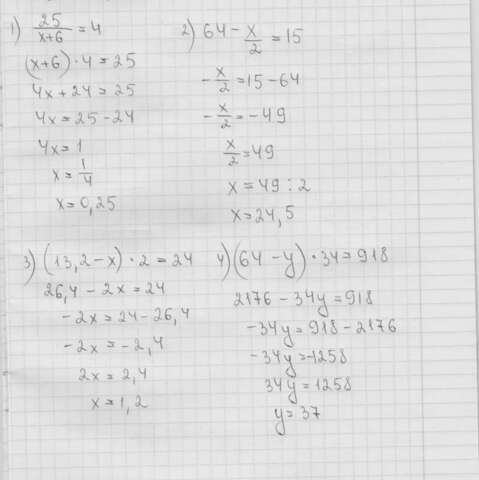 1) 25/(x+6) = 4
(x+6)·4=25
4x+24=25
4x=25-24
4x=1
x=1/4
x=0,25
2) 64-x/2=15
-x/2=15-64
-x/2=-49
x/2=49
x=49:2
x=24,5
3) (13,2-x)·2=24
26,4-2x=24
-2x=24-26,4
-2x=-2,4
2x=2,4
x=1,2
4) (64-y)·34=918
2176-34y=918
-34y=918-2176
-34y=-1258
34y=1258
y=37